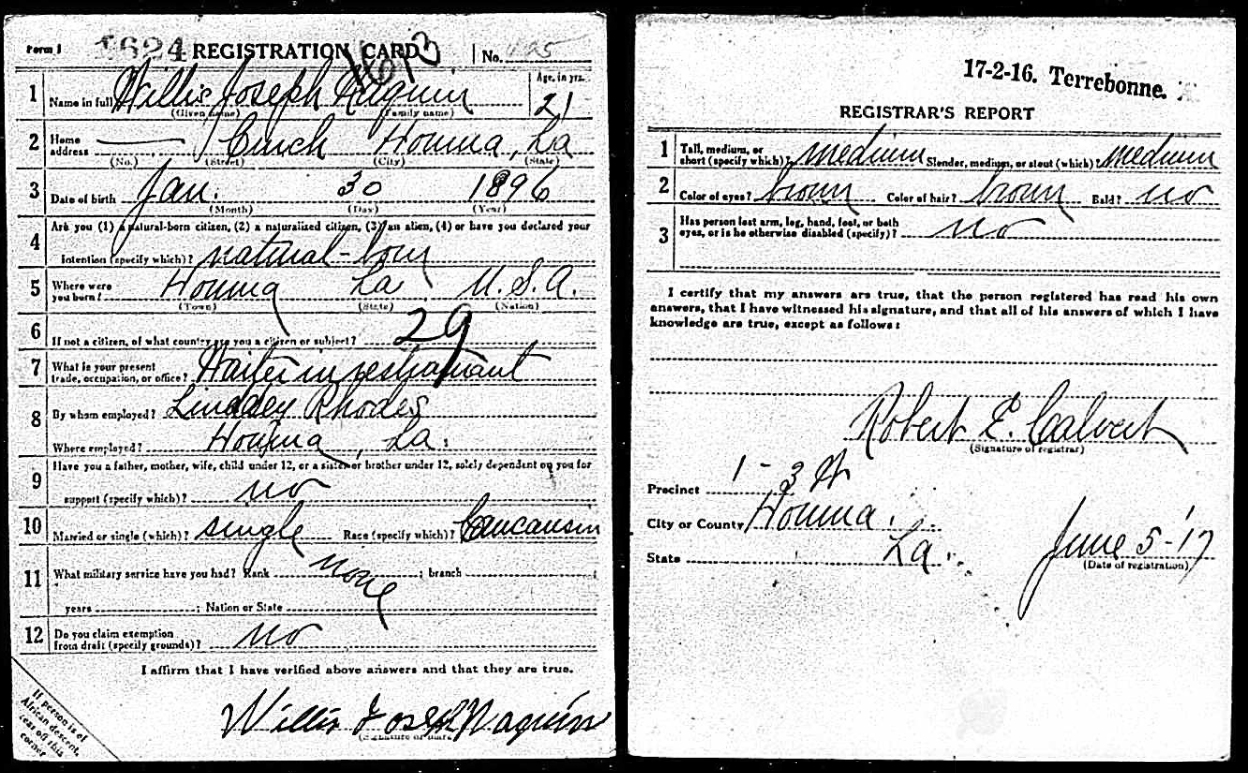 Form 1 1624 REGISTRATION CARD 1613 No. 125
1 Name in full Willis Joseph Naquin Age, in yrs. 21
(Given name) (Family name)
2 Home address Church Houma, La
(No.) (Street) (City) (State)
3 Date of birth Jan. 30 1896
(Month) (Day) (Year)
4 Are you (1) a natural-born citizen, (2) a naturalized citizen, (3) an alien, (4) or have you declared your
intention (specify which)? natural-born
5 Where were you born? Houma La U.S.A.
(Town) (State) (Nation)
6 If not a citizen, of what country are you a citizen or subject? 29
7 What is your present trade, occupation, or office? Waiter in restaurant
8 By whom employed? Rhodes
Where employed? Houma, La.
9 Have you a father, mother, wife, child under 12, or a sister or brother under 12, solely dependent on you for
support (specify which)? no
10 Married or single (which)? single Race (specify which)? Caucausin
11 What military service have you had? Rank none ; branch ;
years ; Nation or State
12 Do you claim exemption from draft (specify grounds)? no
I affirm that I have verified above answers and that they are true.
Willis Joseph Naquin
(Signature or mark)
If person is of
African descent,
tear off this
corner
17-2-16. Terrebonne.
REGISTRAR'S REPORT
1 Tall, medium, or short (specify which)? medium Slender, medium, or stout (which)? medium
2 Color of eyes? brown Color of hair? brown Bald? no
3 Has person lost arm, leg, hand, foot, or both eyes, or is he otherwise disabled (specify)? no
I certify that my answers are true, that the person registered has read his own
answers, that I have witnessed his signature, and that all of his answers of which I have
knowledge are true, except as follows:
Robert E. Calvert
(Signature of registrar)
Precinct 1 - 3 W
City or County Houma.
State La. June 5-'17
(Date of registration)